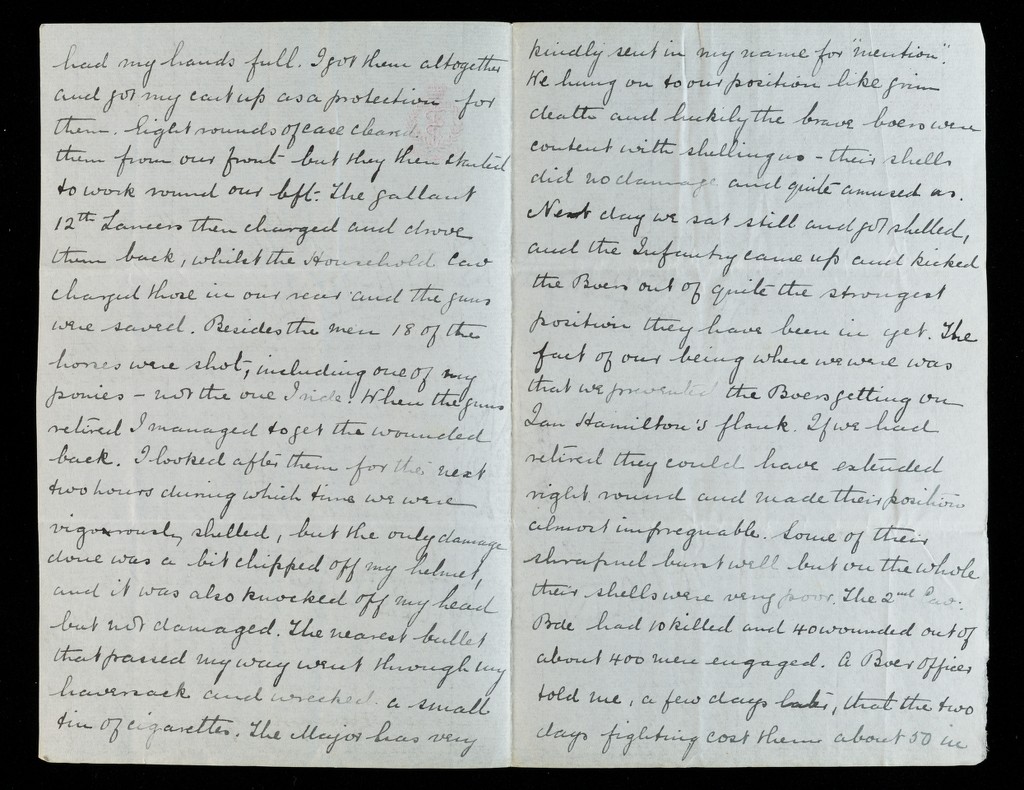 had my hands full. I got them altogether
and got my cart up as a protection for
them. Eight rounds of case cleared
them from our front but they then started
to work round our left. The gallant
12th Lancers then charged and drove
them back, whilst the Household Cav
charged those in our rear and the guns
were saved. Besides the men 18 of the
horses were shot, including one of my
ponies – not the one I ride. When the guns
retired I managed to get the wounded
back. I looked after them for the next
two hours during which time we were
vigorously shelled, but the only damage
done was a bit chipped off my helmet,
and it was also knocked off my head
but not damaged. The nearest bullet
that passed my way went through my
haversack and wrecked a small
tin of cigarettes. The Major has very
kindly sent in my name for "mention".
We hung on to our position like grim
death and luckily the brave boers were
content with shelling us – their shells
did no damage and quite amused us.
Next day we sat still and got shelled,
and the Infantry came up and kicked
the Boers out of quite the strongest
position they have been in yet. The
fact of our being where we were was
that we prevented the Boers getting on
Ian Hamilton's flank. If we had
retired they could have extended
right round and made their position
almost impregnable. Some of their
shrapnel burst well but on the whole
their shells were very poor. The 2nd Cav.
Bde had 10 killed and 40 wounded out of
about 400 men engaged. A Boer Officer
told me, a few days later, that the two
days fighting cost them about 50 in